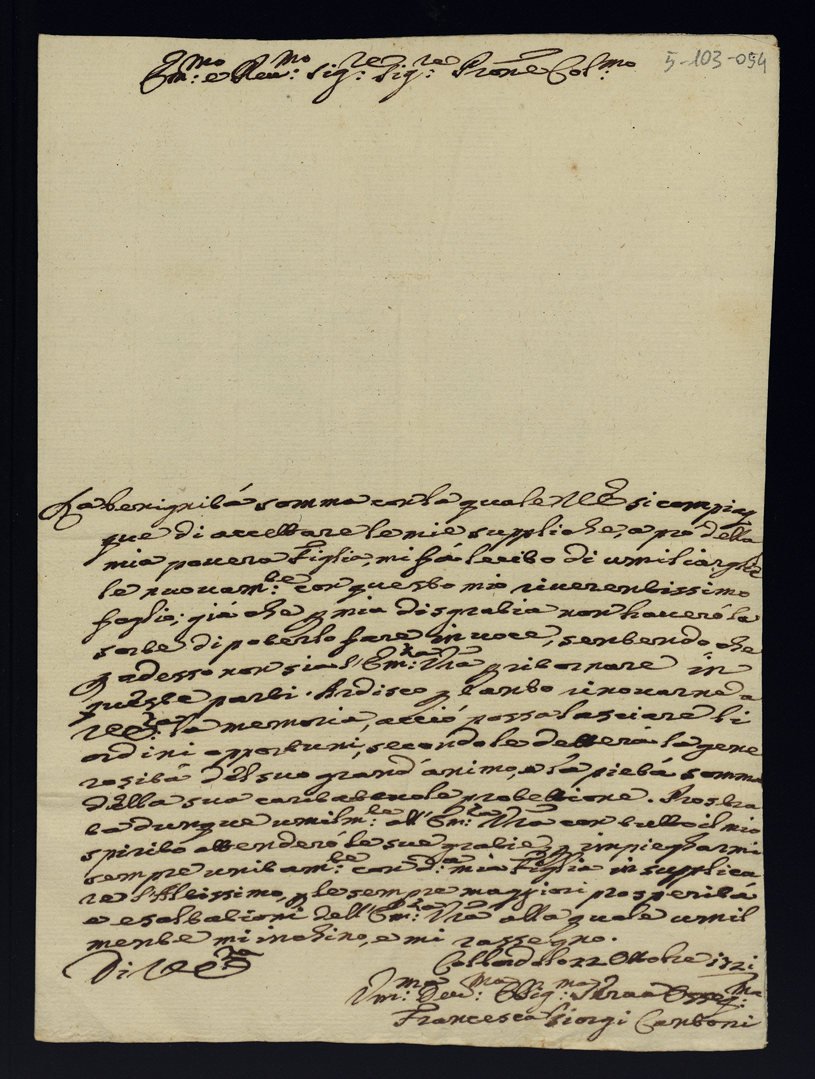 5-103-054
Em:mo e Reu:mo Sig:re Sig:re P̃rone Col:mo
La benignità somma con la quale V E si compiac
que di accettare le mie suppliche, a pro della
mia povera Figlia, mi fà lecito di umiliargli
le nuouam:te con questo mio riuerentissimo
foglio; già che p mia disgratia non hauerò la
sorte di poterlo fare in uoce, sentendo che
p adesso non sia l'Em:za Vrã p ritornare in
queste parti. Ardisco p tanto rinouarne a
V E:za la memoria, acciò possa lasciare li
ordini opportuni, secondo le detterà la gene
rosità del suo grand'animo, e la pietà somma
della sua caritateuole protettione. Prostra
ta dunque umilm:te all'Em:za Vrã con tutto il mio
spirito attenderò le sue gratie p impiegharmi
sempre unitam:te con d:a mia Figlia in supplica
re l'Altissimo, p le sempre maggiori prosperità
e esaltationi dell'Em:za Vrã alla quale umil
mente mi inchino, e mi rassegno.
Di V E:za
22 Ottobre 1721
Um:ma Deu:ma Oblig:ma Serua Osseq:ma
Francesca Giorgi Carboni